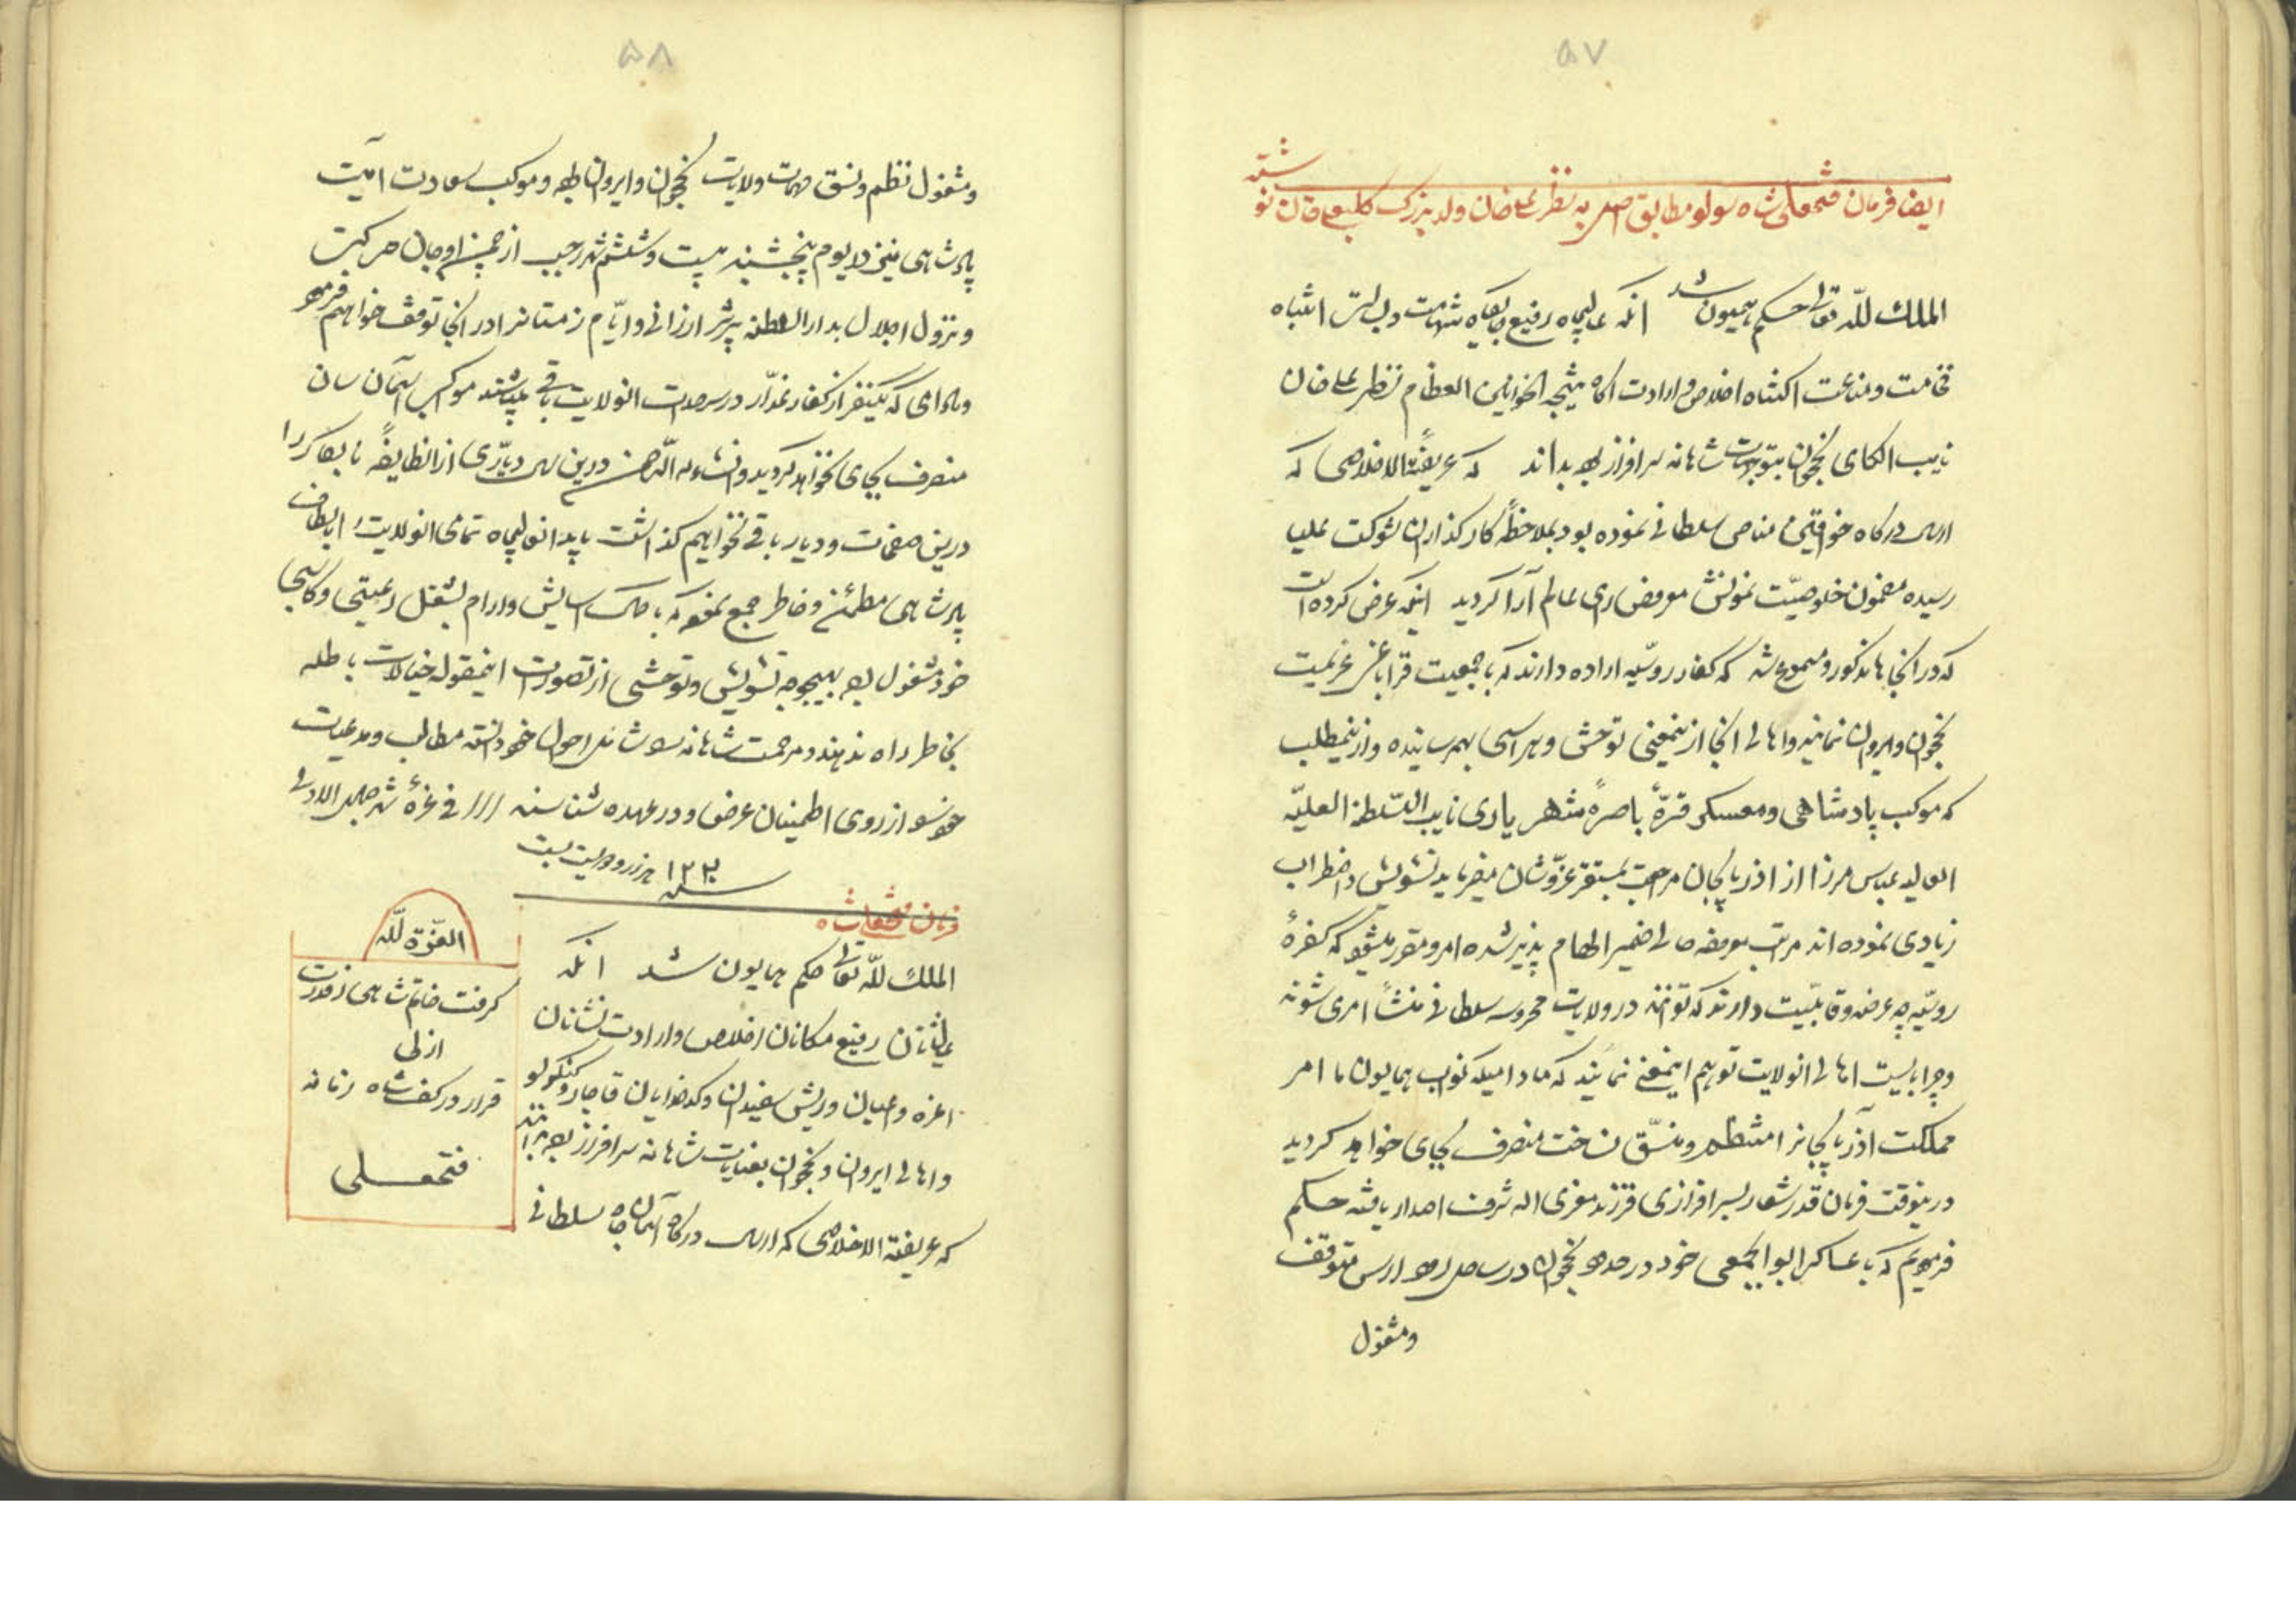 ۵۷
ایضا فرمان فتحعلی شاه سولو مطابق اصل به نظر علی خان ولد بزرگ کلبعلی خان نوشته شد
الملك للّه تعالی حکم همیون شد آنکه عالیجاه رفیع جایگاه شهامت و بسالت انتباه
فخامت و مناعت اکتناه اخلاص و ارادت آگاه نتیجة الخوانین العظام نظر علی خان
نایب الکای نخجوان بتوجهات شاهانه سرافراز بوده بداند که عریضة الاخلاصی که
ارسال درگاه خواقین مناص سلطانی نموده بود بملاحظهٔ کارگذاران شوکت علیا
رسیده مضمون خلوصیّت نمونش معروض رای عالم آرا گردید اینکه عرض کرده است
که در انجاها مذکور و مسموع شد که کفار روسّیه اراده دارند که با جمعیت قراباغی عزیمت
نخجوان و ایروان نمایند و اهالی انجا ازینمعنی توحش و هراسی بهمرسانیده و ازینمطلب
که موکب پادشاهی و معسکر قرّهٔ باصرهٔ شهریاری نایب السّلطنة العلیّه
العالیه عباس مرزا از اذربایجان مراجعت بمستقر عزّ و شان میفرماید تشویش و اضطراب
زیادی نموده اند مراتب معروضه حالی ضمیر الهام پذیر شده امر و مقرر میشود که کفرهٔ
روسیّه چه عرضه و قابلیّت دارند که توانند در ولایت محروسه سلطانی منشأ امری شوند
و چرا بایست اهالی انولایت توهم اینمعنی نمایند که مادامیکه نواب همایون ما امر
مملکت آذربایجانرا منتظم و منسّق نساخت منصرف بجای خواهد گردید
درینوقت فرمان قدر شعار بسرافرازی فرزند معزی الیه شرف اصدار یافته حکم
فرمودیم که با عساکر ابوابجمعی خود در حدود نخجوان در ساحل رود ارس متوقف
و مشغول
۵۸
و مشغول نظم و نسق مهمات ولایات نخجوان و ایروان بوده و موکب سعادت آیت
پادشاهی نیز در یوم پنجشنبه بیست و ششم شهر رجب از چمن اوجان حرکت
و نزول اجلال بدار السلطنه تبریز ارزانی و ایّام زمستانرا در انجا توقف خواهیم فرمود
و مادامی که یکنفر از کفار غدّار در سرحدات انولایت باقی باشند موکب آسمان سان
منصرف بجای نخواهد گردید و انشاء الله الرحمن درین سال دیاری از انطایفهٔ نابکار را
درین صفحات و دیار باقی نخواهیم گذاشت باید انعالیجاه تمامی انولایت را بالطاف
پادشاهی مطمئن و خاطر جمع نموده که با کمال اسایش و ارام بشغل رعیتی و کاسبی
خود مشغول بوده بهیچوجه تشویش و توحشی از تصورات اینمقوله خیالات باطله
بخاطر راه ندهند و مرحمت شاهانه را شامل احوال خود دانسته مطالب و مدعیات
خود را از روی اطمینان عرض و در عهده شناسند /// فی غرهٔ شهر جمادی الاولی
سنه ۱۲۲۰ هزار و دویست بیست
فرمان فتحعلیشاه
الملكُ للّه تعالی حکم همایون شد آنکه
عالیشانان رفیع مکانان اخلاص و ارادت نشانان
اعزه و اعیان و ریش سفیدان و کدخدایان قاجار و کنکرلو
و اهالی ایروان و نخجوان بعنایات شاهانه سرافراز بوده بدانند
که عریضة الاخلاصی که ارسال درگاه آسمان جاه سلطانی
العزّة للّه
گرفت خاتم شاهی ز قدرت
ازلی
قرار در کف شاه زمانه
فتحعلی